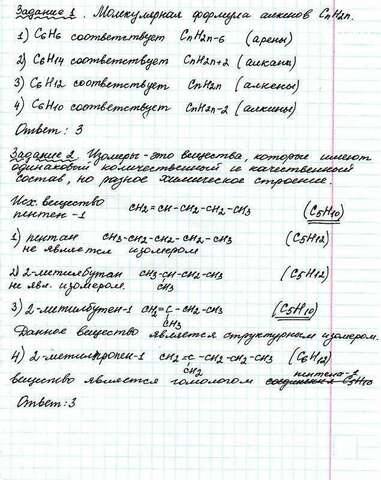 Задание 1. Молекулярная формула алкенов CnH2n.
1) C6H6 соответствует CnH2n-6 (арены)
2) C6H14 соответствует CnH2n+2 (алканы)
3) C6H12 соответствует CnH2n (алкены)
4) C6H10 соответствует CnH2n-2 (алкины)
Ответ: 3
Задание 2. Изомеры - это вещества, которые имеют
одинаковый количественный и качественный
состав, но разное химическое строение.
Исх. вещество
пентен-1 CH2=CH-CH2-CH2-CH3 (C5H10)
1) пентан CH3-CH2-CH2-CH2-CH3 (C5H12)
не является изомером
2) 2-метилбутан CH3-CH-CH2-CH3 (C5H12)
не явл. изомером. CH3
3) 2-метилбутен-1 CH2=C-CH2-CH3 (C5H10)
CH3
Данное вещество является структурным изомером.
4) 2-метилпропен-1 CH2=C-CH2-CH2-CH3 (C6H12)
CH2 пентена-1
вещество является гомологом соединения C5H10
Ответ: 3